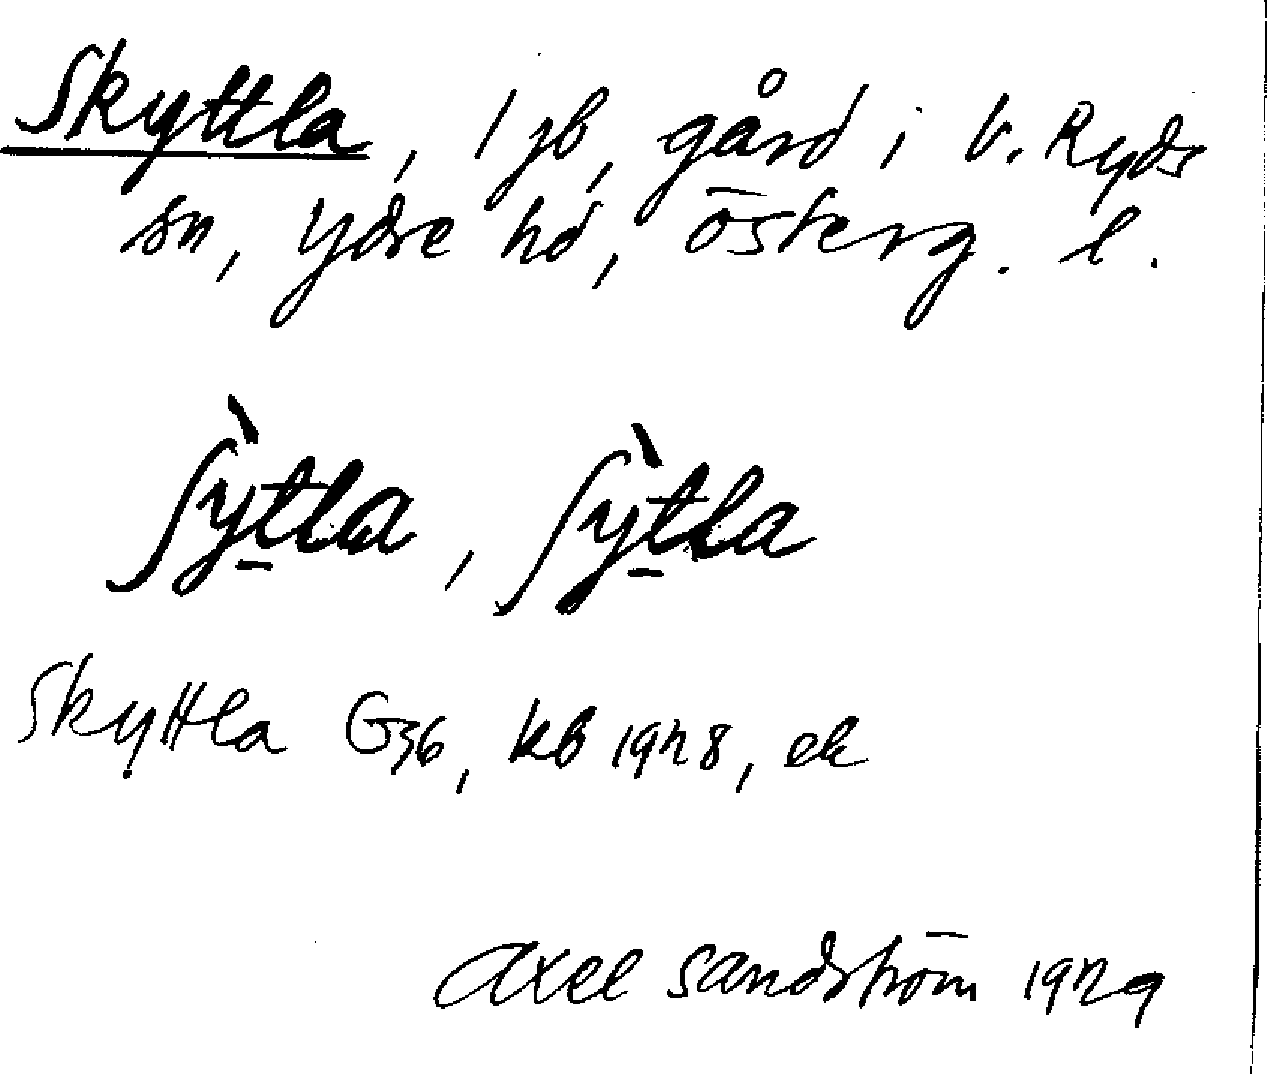 Skyttla, 1 jb, gård i V. Ryds
sn, Ydre hd, Österg. l.
ʃỳt̲la, ʃỳt̲la
Skyttla G36, kb 1928, ek
Axel Sandström 1929